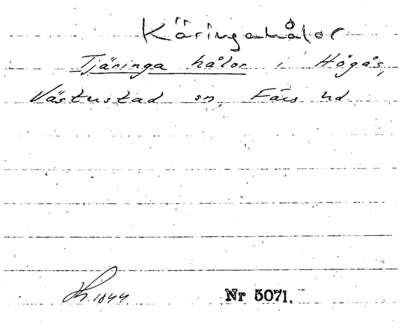 Käringahålor
Tjäringa hålor i Högås,
Västustad sn, Färs hd
1844. Nr 5071.